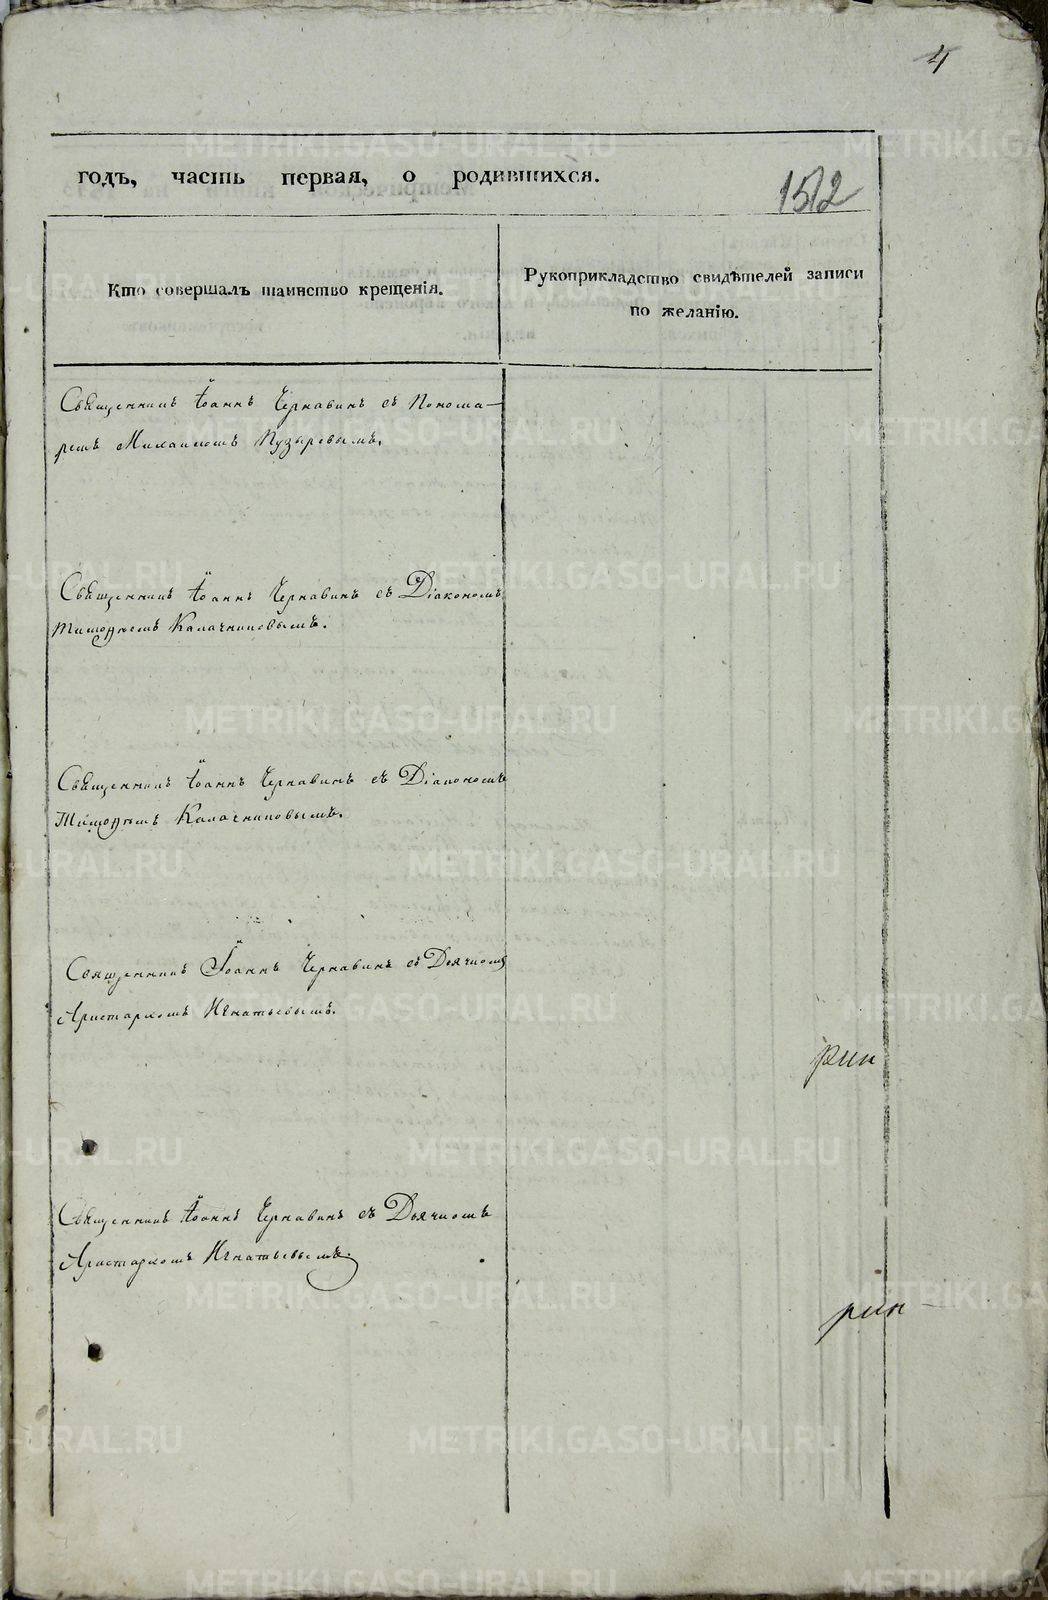 4
годъ, часть первая, о родившихся.
1512
Кто совершалъ таинство крещенія.
Рукоприкладство свидѣтелей записи
по желанію.
Священникъ Іоаннъ Чернавинъ съ Понома-
ремъ Михаиломъ Пузыревымъ.
Священникъ Іоаннъ Чернавинъ съ Діакономъ
Тимофѣемъ Калачниковымъ.
Священникъ Іоаннъ Чернавинъ съ Діакономъ
Тимофѣемъ Калачниковымъ.
Священникъ Іоаннъ Чернавинъ съ Дьячкомъ
Аристархомъ Игнатьевымъ.
Священникъ Іоаннъ Чернавинъ съ Дьячкомъ
Аристархомъ Игнатьевымъ.
METRIKI.GASO-URAL.RU